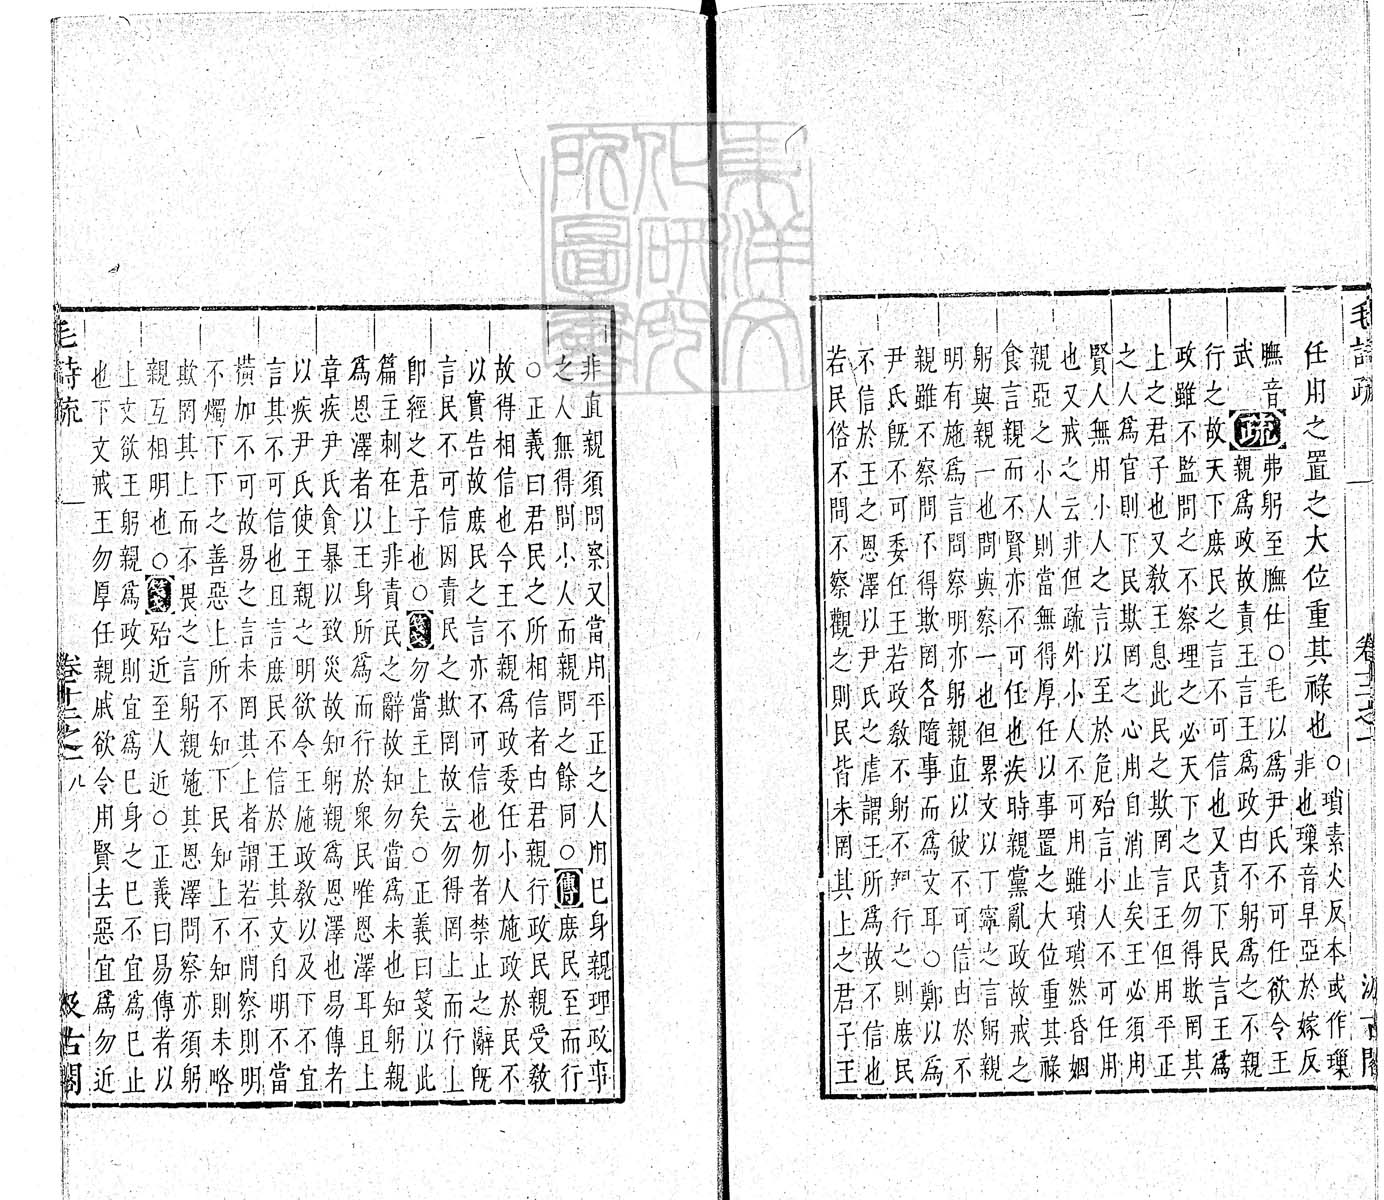 毛詩疏 卷十二之一 汲古閣
任用之置之大位重其祿也○瑣素火反本或作璅
非也璅音早亞於嫁反
膴音
武
疏
弗躬至膴仕○毛以爲尹氏不可任欲令王
親爲政故責王言王爲政由不躬爲之不親
行之故天下庶民之言不可信也又責下民言王爲
政雖不監問之不察理之必天下之民勿得欺罔其
上之君子也又敎王息此民之欺罔言王但用平正
之人爲官則下民欺罔之心用自消止矣王必須用
賢人無用小人之言以至於危殆言小人不可任用
也又戒之云非但疏外小人不可用雖瑣瑣然昏姻
親亞之小人則當無得厚任以事置之大位重其祿
食言親而不賢亦不可任也疾時親黨亂政故戒之
躬與親一也問與察一也但累文以丁寧之言躬親
明有施爲言問察明亦躬親直以彼不可信由於不
親雖不察問不得欺罔各隨事而爲文耳○鄭以爲
尹氏旣不可委任王若政敎不躬不親行之則庶民
不信於王之恩澤以尹氏之虐謂王所爲故不信也
若民俗不問不察觀之則民皆未罔其上之君子王
非直親須問察又當用平正之人用己身親理政事
之人無得問小人而親問之餘同○傳庶民至而行
○正義曰君民之所相信者由君親行政民親受敎
故得相信也今王不親爲政委任小人施政於民不
以實告故庶民之言亦不可信也勿者禁止之辭旣
言民不可信因責民之欺罔故云勿得罔上而行上
卽經之君子也○箋勿當至上矣○正義曰箋以此
篇主刺在上非責民之辭故知勿當爲末也知躬親
爲恩澤者以王身所爲而行於衆民唯恩澤耳且上
章疾尹氏貪暴以致災故知躬親爲恩澤也易傳者
以疾尹氏使王親之明欲令王施政敎以及下不宜
言其不可信也且言庶民不信於王其文自明不當
橫加不可故易之言未罔其上者謂若不問察則明
不燭下下之善惡上所不知下民知上不知則末略
欺罔其上而不畏之言躬親施其恩澤問察亦須躬
親互相明也○箋殆近至人近○正義曰易傳者以
上文欲王躬親爲政則宜爲己身之己不宜爲已止
也下文戒王勿厚任親戚欲令用賢去惡宜爲勿近
毛詩疏 卷十二之一 八 汲古閣